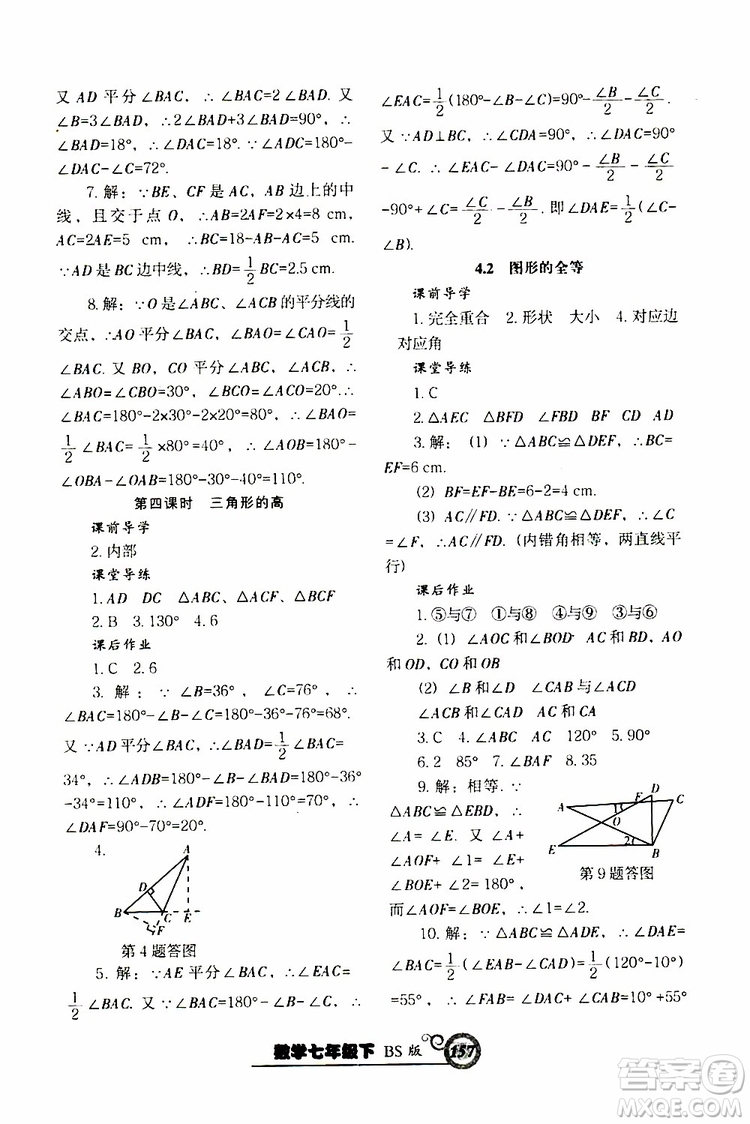 又 AD 平分∠BAC, ∴∠BAC=2∠BAD. 又
∠B=3∠BAD, ∴2∠BAD+3∠BAD=90°, ∴
∠BAD=18°, ∴∠DAC=18°. ∠ADC=180°-
∠DAC-∠C=72°.
7. 解: ∵BE, CF 是 AC, AB 边上的中
线, 且交于点 O, ∴AB=2AF=2×4=8 cm,
AC=2AE=5 cm, ∴BC=18-AB-AC=5 cm.
∵AD 是 BC 边中线, ∴BD=1/2BC=2.5 cm.
8. 解: ∵O 是∠ABC、∠ACB 的平分线的
交点, ∴AO 平分∠BAC, ∴∠BAO=∠CAO=1/2
∠BAC. 又 BO, CO 平分∠ABC, ∠ACB, ∴
∠ABO=∠CBO=30°, ∠BCO=∠ACO=20°. ∴
∠BAC=180°-2×30°-2×20°=80°, ∴∠BAO=
1/2∠BAC=1/2×80°=40°, ∴∠AOB=180°-
∠OBA-∠OAB=180°-30°-40°=110°.
第四课时 三角形的高
课前导学
2. 内部
课堂导练
1. AD DC △ABC、△ACF、△BCF
2. B 3. 130° 4. 6
课后作业
1. C 2. 6
3. 解: ∵∠B=36°, ∠C=76°, ∴
∠BAC=180°-∠B-∠C=180°-36°-76°=68°.
又∵AD 平分∠BAC, ∴∠BAD=1/2∠BAC=
34°, ∴∠ADB=180°-∠B-∠BAD=180°-36°
-34°=110°, ∴∠ADF=180°-110°=70°, ∴
∠DAF=90°-70°=20°.
4.
A
D
B C E
F
第 4 题答图
5. 解: ∵AE 平分∠BAC, ∴∠EAC=
1/2∠BAC. 又∵∠BAC=180°-∠B-∠C, ∴
∠EAC=1/2(180°-∠B-∠C)=90°-∠B/2-∠C/2.
又∵AD⊥BC, ∴∠CDA=90°, ∴∠DAC=90°
-∠C. ∴∠DAE=∠EAC-∠DAC=90°-∠B/2-∠C/2
-90°+∠C=∠C/2-∠B/2. 即∠DAE=1/2(∠C-
∠B).
4.2 图形的全等
课前导学
1. 完全重合 2. 形状 大小 4. 对应边
对应角
课堂导练
1. C
2. △AEC △BFD ∠FBD BF CD AD
3. 解: (1) ∵△ABC≌△DEF, ∴BC=
EF=6 cm.
(2) BF=EF-BE=6-2=4 cm.
(3) AC∥FD. ∵△ABC≌△DEF, ∴∠C
=∠F, ∴AC∥FD. (内错角相等, 两直线平
行)
课后作业
1. ⑤与⑦ ①与⑧ ④与⑨ ③与⑥
2. (1) ∠AOC和∠BOD AC和BD, AO
和OD, CO和OB
(2) ∠B和∠D ∠CAB与∠ACD
∠ACB与∠CAD AC和CA
3. C 4. ∠C ∠OBC 120° 5. 90°
6. 2 85° 7. ∠BAF 8. 35
9. 解: 相等. ∵
△ABC≌△EBD, ∴
∠A=∠E. 又∠A+
∠AOF+∠1=∠E+
∠BOE+∠2=180°,
而∠AOF=∠BOE, ∴∠1=∠2.
A F D C
1
O
2
E B
第 9 题答图
10. 解: ∵△ABC≌△ADE, ∴∠DAE=
∠BAC=1/2(∠EAB-∠CAD)=1/2(120°-10°)
=55°, ∴∠FAB=∠DAC+∠BAC=10°+55°
数学七年级下 BS 版 157
答案圈
MXQE.COM